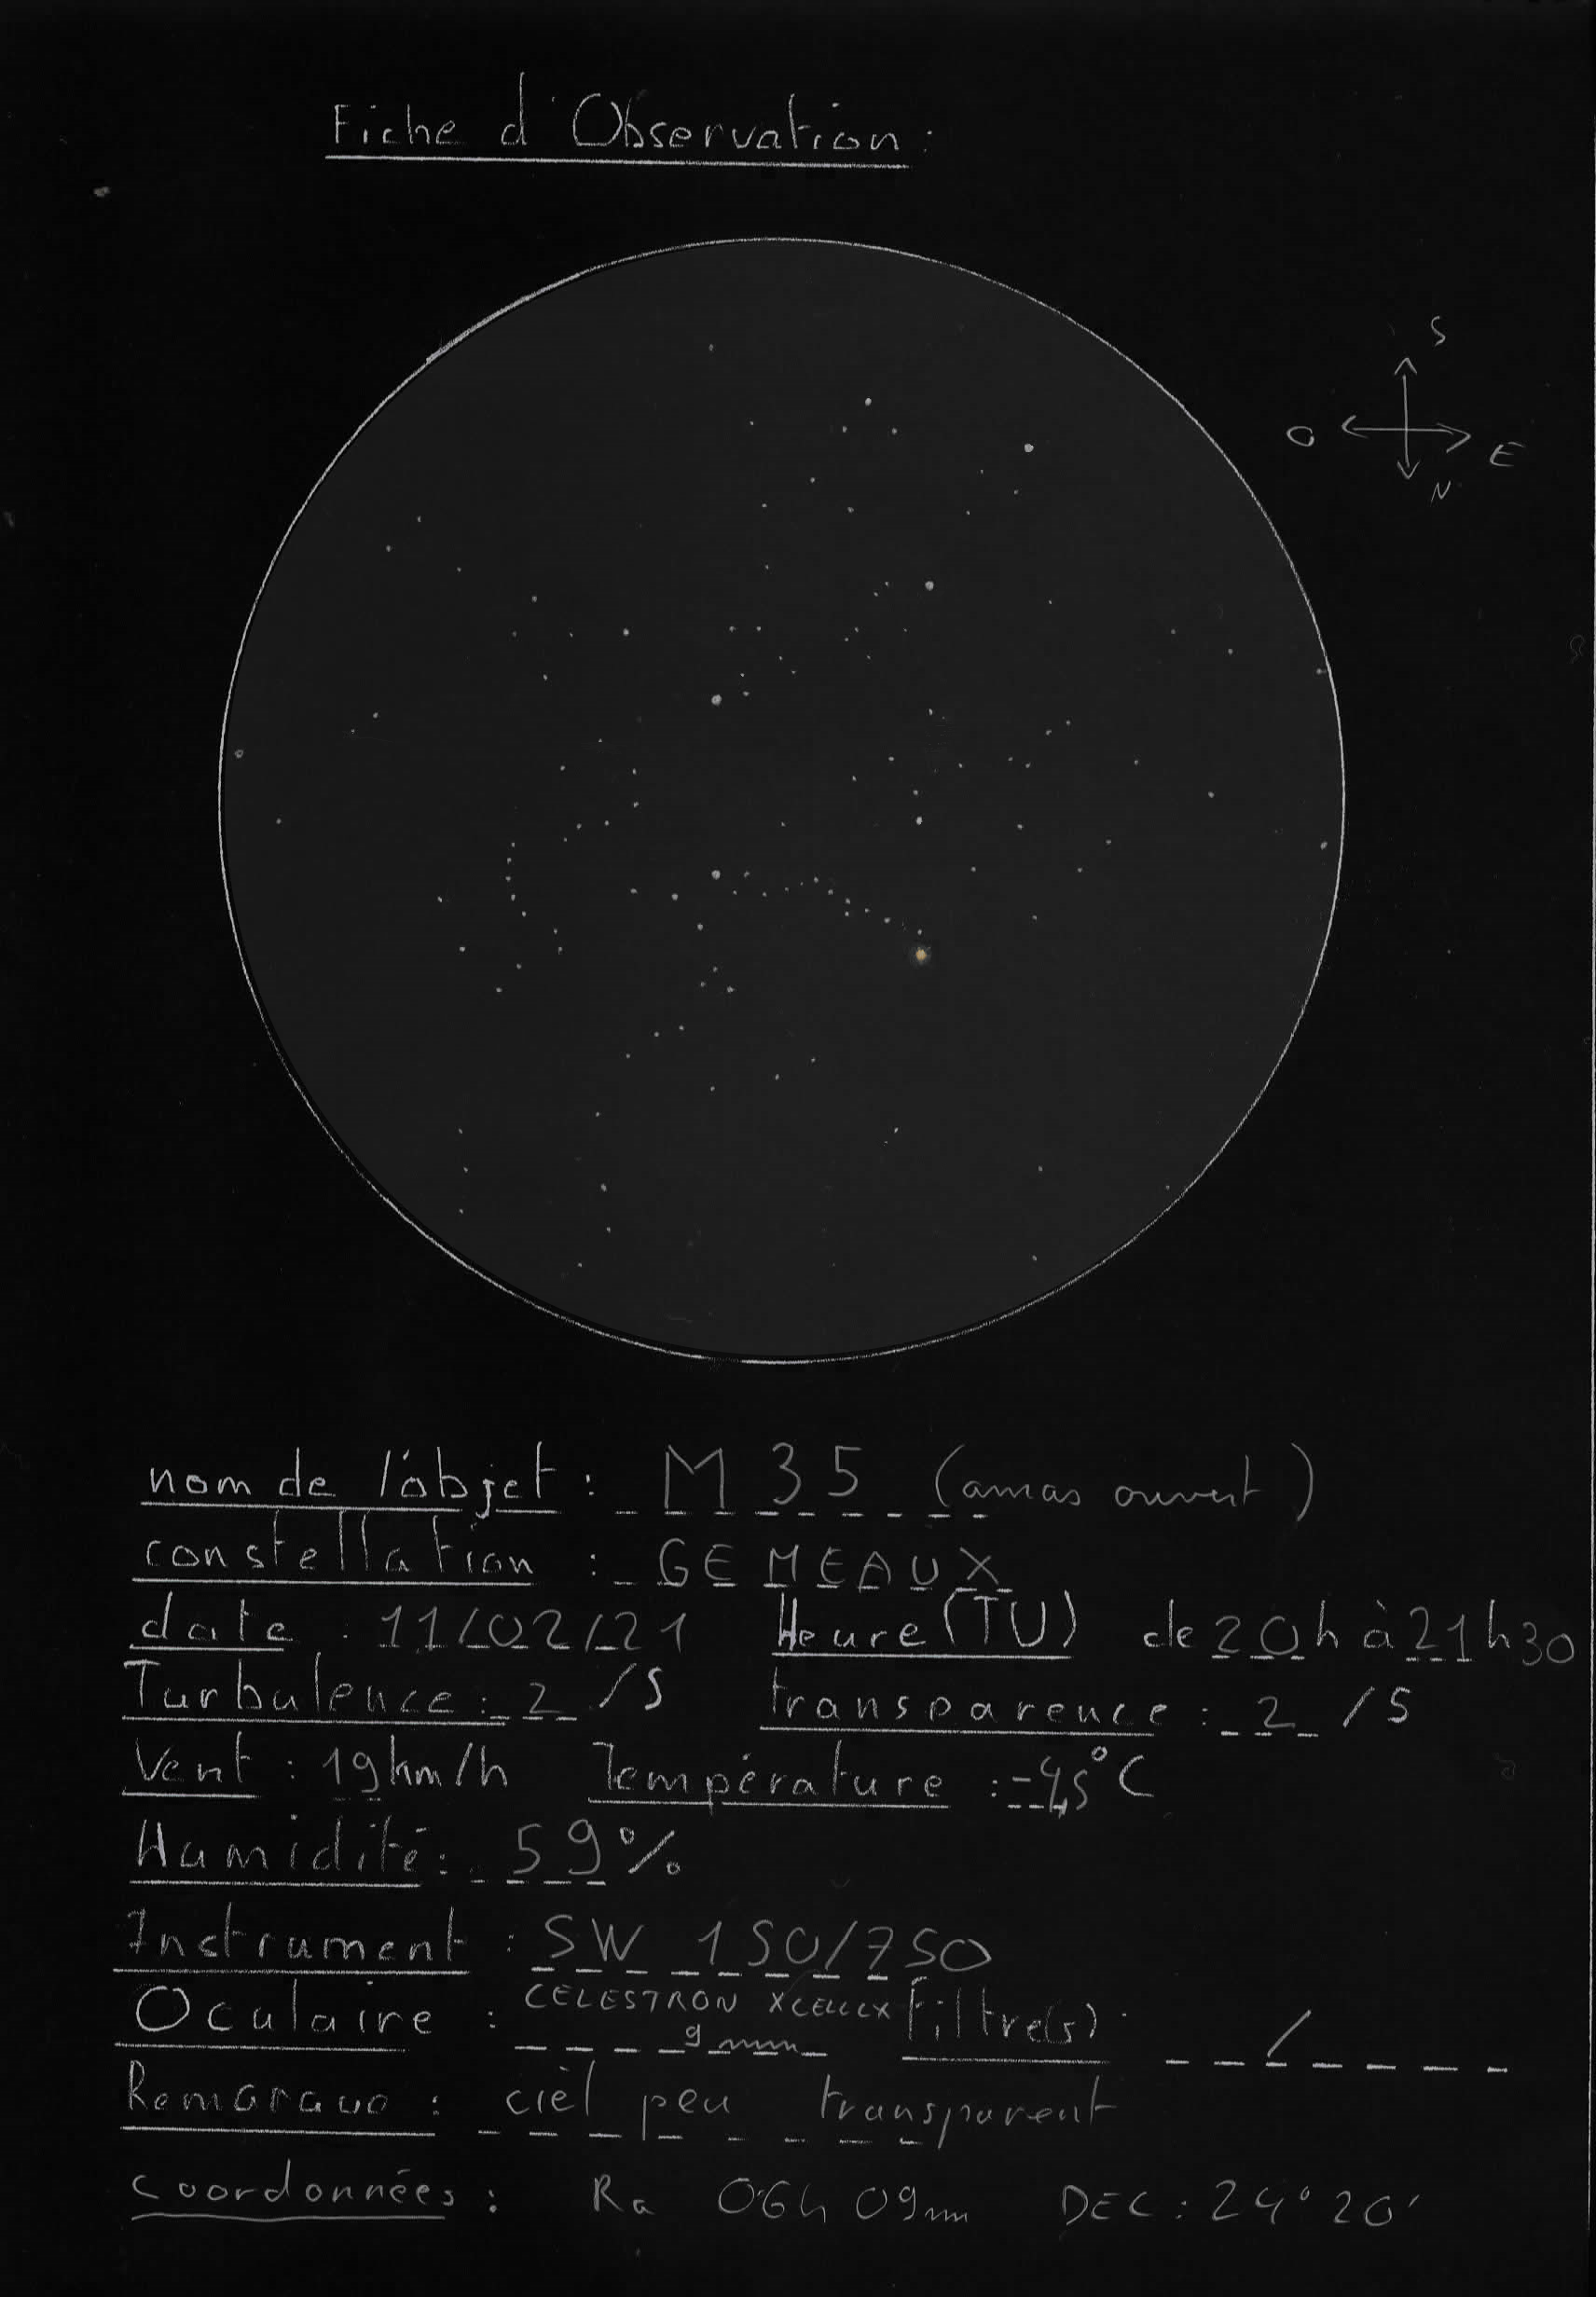 Fiche d'Observation:
S
O E
N
nom de l'objet : M 35 (amas ouvert)
constellation : GEMEAUX
date : 11/02/21 Heure (TU) de 20h à 21h30
Turbulence : 2 /5 transparence : 2 /5
Vent : 19km/h Température : -4,5°C
Humidité : 59%
Instrument : SW 150/750
Oculaire : CELESTRON XCELLX 9mm Filtre(s) : /
Remarque : ciel peu transparent
coordonnées : Ra 06h 09m DEC : 24° 20'